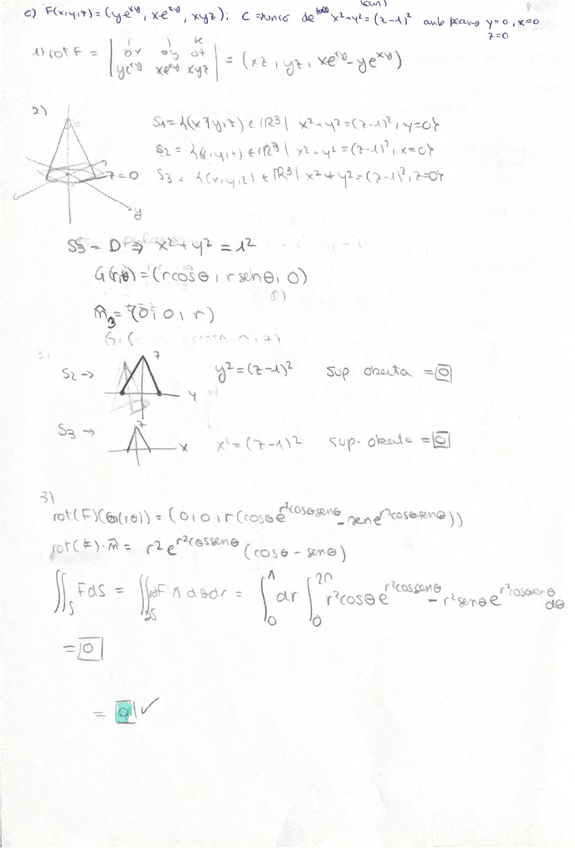 c) F(x,y,z) = (ye^xy, xe^xy, xyz): C = x²+y² = (z-1)² amb plans y=0, x=0
z=0
1) rot F = | i j k ∂x ∂y ∂z ye^xy xe^xy xyz | = (xz, yz, xe^xy - ye^xy)
2)
S1 = {(x,y,z) ∈ IR³ | x²+y² = (z-1)², y=0}
S2 = {(x,y,z) ∈ IR³ | x²+y² = (z-1)², x=0}
z=0 S3 = {(x,y,z) ∈ IR³ | x²+y² = (z-1)², z=0}
y
S3 = D ⇒ x²+y² = 1²
G(r,θ) = (r cosθ, r senθ, 0)
n3 = (0, 0, r)
z
S2 → y y² = (z-1)² sup oberta = 0
z
S3 → x x² = (z-1)² sup. oberta = 0
3)
rot(F)(G(r,θ)) = (0, 0, r(cosθ e^r²cosθsenθ - senθ e^r²cosθsenθ))
rot(F)·n = r² e^r²cosθsenθ (cosθ - senθ)
∬_S F dS = ∬ rot F n dθdr = ∫_0^1 dr ∫_0^2π r²cosθ e^r²cosθsenθ - r²senθ e^r²cosθsenθ dθ
= 0
= 0 ✓